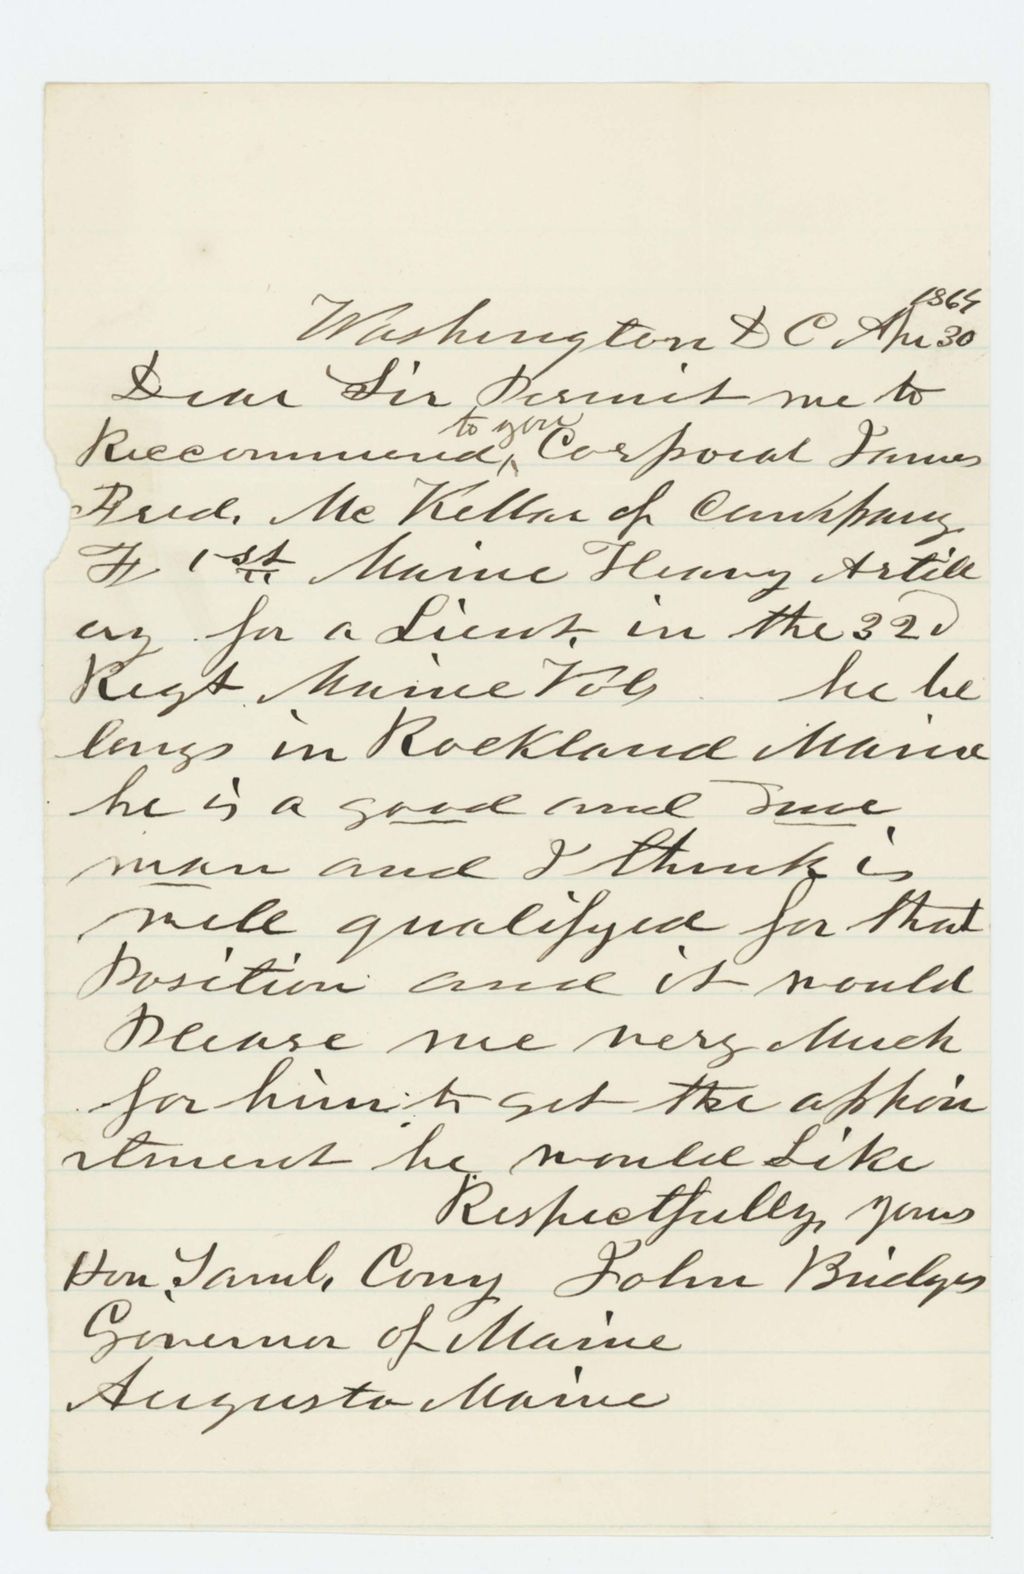 1864
Washington D C Apr 30
Dear Sir Permit me to
to you
Reccommend, Corporal James
Fred. Mc Kellar of Company
F 1st Maine Heavy Artill
ery for a Lieut. in the 32d
Regt Maine Vols he be
longs in Rockland Maine
he is a good and True
man and I think is
well qualifyed for that
Position and it would
Please me very Much
for him to get the appoin
tment he would Like
Respectfully yours
Hon, Saml. Cony John Bridges
Governor of Maine
Augusta Maine